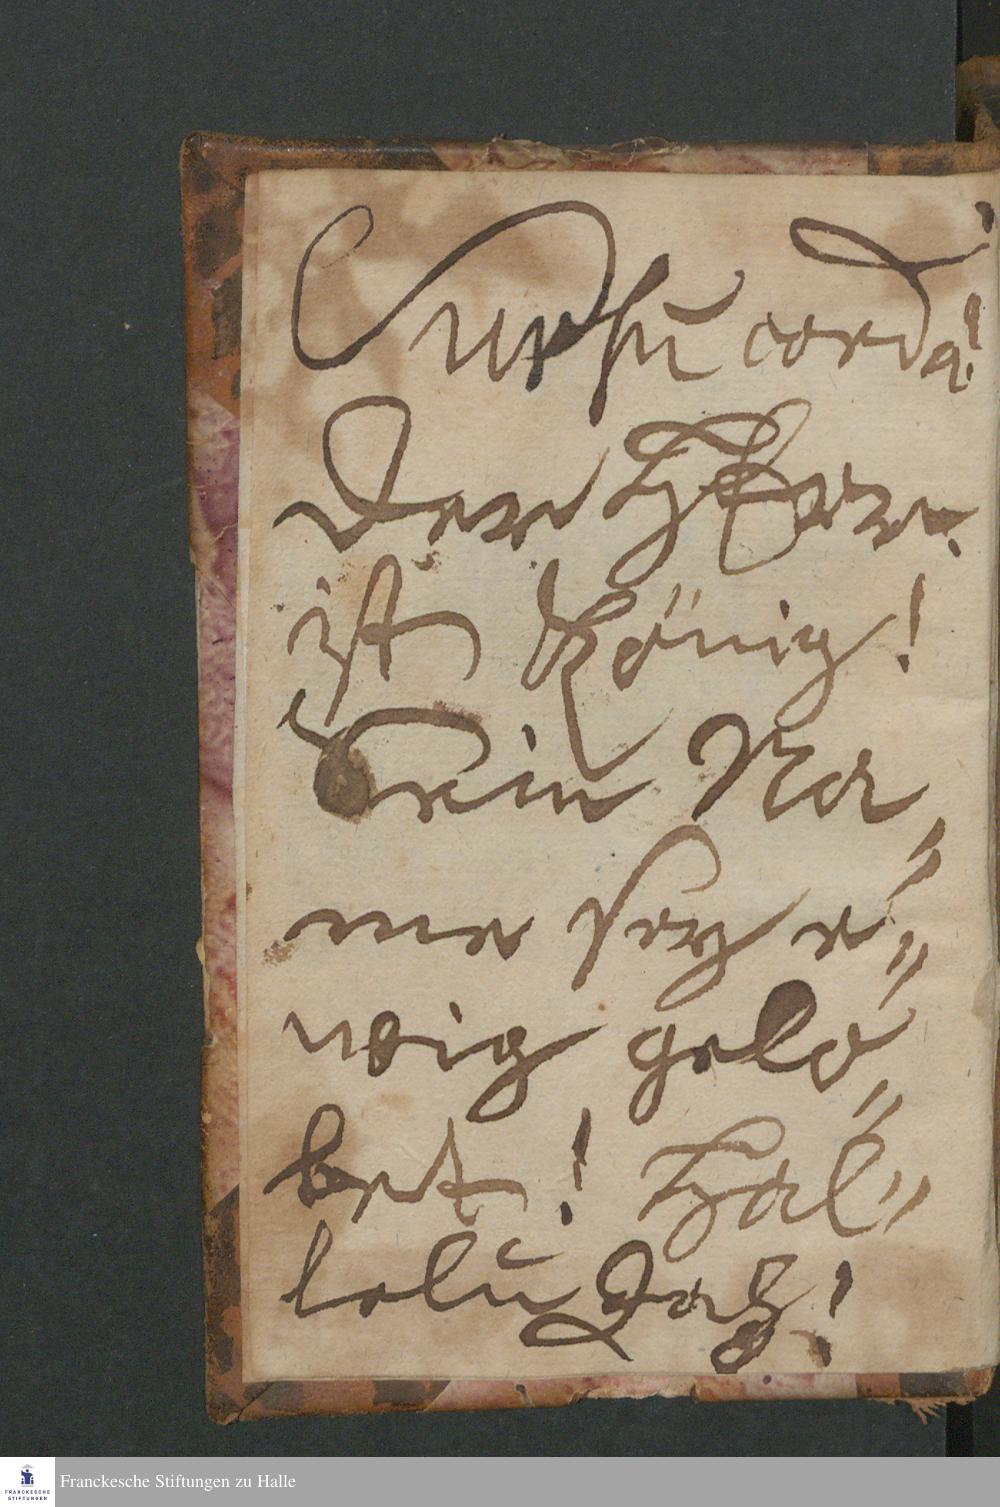 Sursum corda!
Der HErr
ist König!
Sein Na⸗
me sey e⸗
wig gelo⸗
bet! Hal⸗
leluJah!
FRANCKESCHE
STIFTUNGEN
Franckesche Stiftungen zu Halle